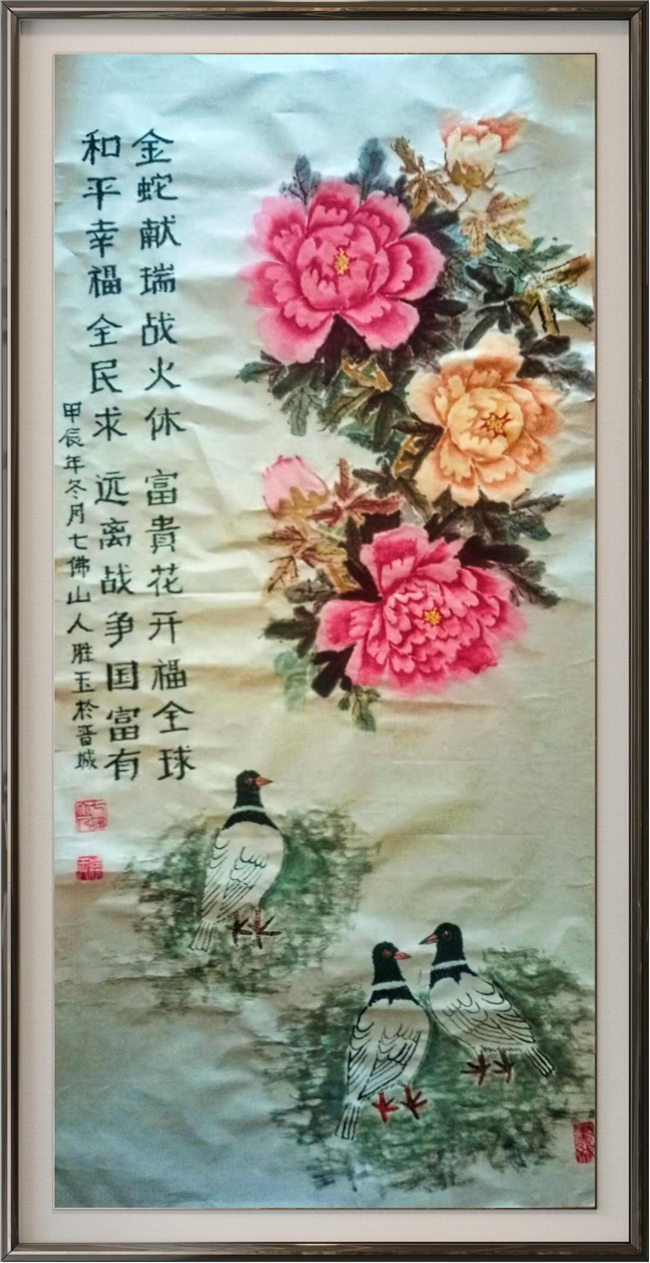 金蛇献瑞战火休 富貴花开福全球
和平幸福全民求 远离战争国富有
甲辰年冬月七佛山人胜玉於晋城